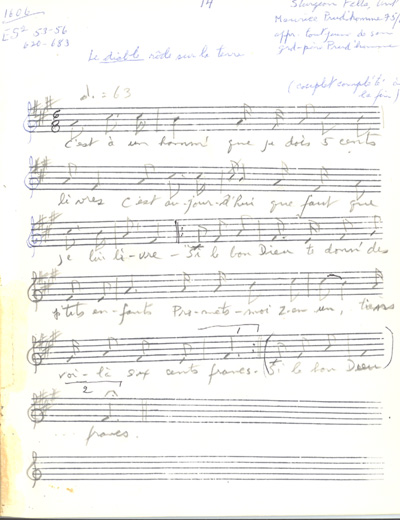 1606
14
Sturgeon Falls, Ont
Maurice Prud'homme 75
53-56
620-683
Le diable rôde sur la terre
(couplet complété
♩. = 63
6/8
c'est à un homm' que je dois 5 cents
livres C'est au-jour-d'hui que faut que
je lui li-vre - Si le bon Dieu te donn' des
p'tits en-fants Pro-mets-moi z-en un, tiens
voi-là six cents francs. (Si le bon Dieu)
1.
2
francs.